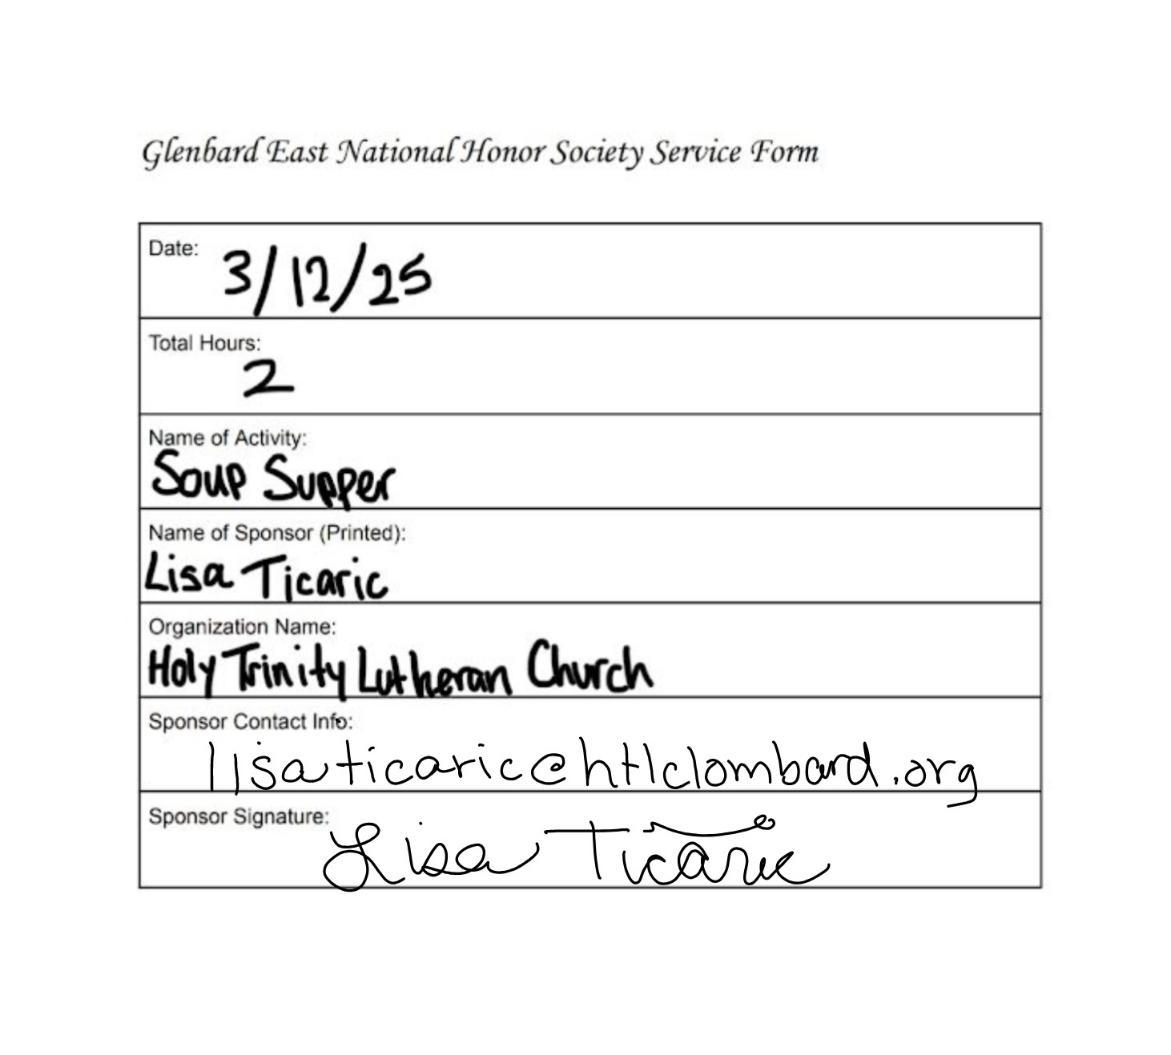 Glenbard East National Honor Society Service Form
Date: 3/12/25
Total Hours:
2
Name of Activity:
Soup Supper
Name of Sponsor (Printed):
Lisa Ticaric
Organization Name:
Holy Trinity Lutheran Church
Sponsor Contact Info:
lisaticaric@htlclombard.org
Sponsor Signature:
Lisa Ticaric